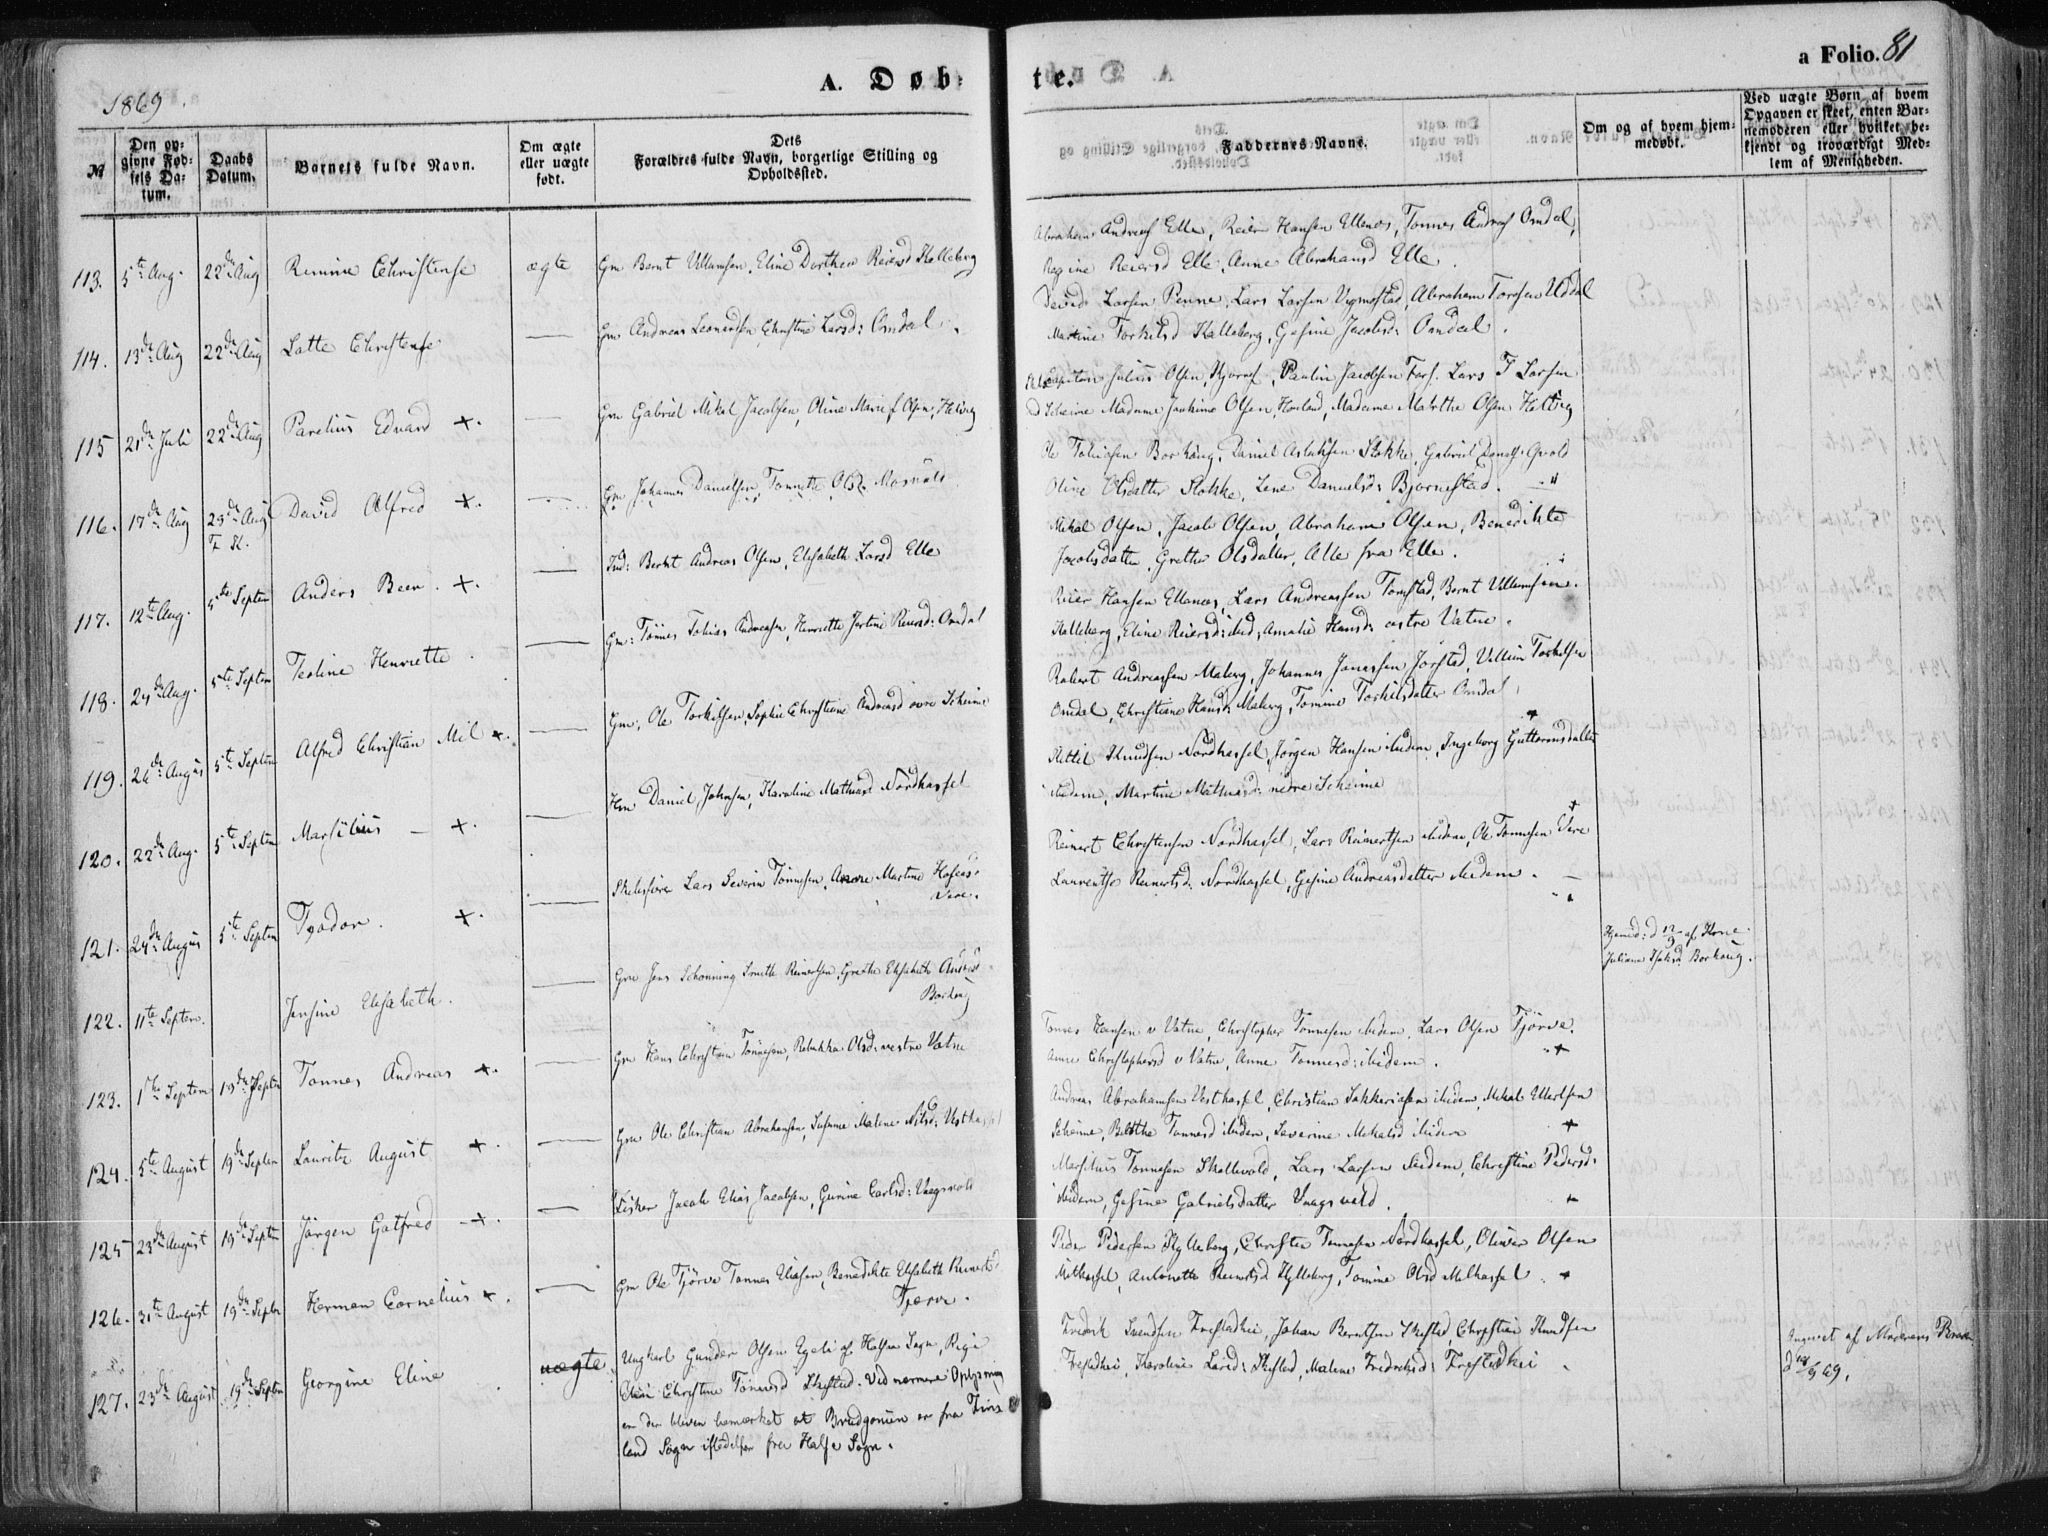 1869.
A. Døb-
te.
a Folio. 81
№
Den opgivne Fødsels Datum.
Daabs Datum.
Barnets fulde Navn.
Om ægte eller uægte født.
Dets Forældres fulde Navn, borgerlige Stilling og Opholdssted.
Faddernes Navne.
Om og af hvem hjemmedøbt.
Ved uægte Børn af hvem Opgaven er skeet, enten Barnemoderen eller hvilket bekjendt og troværdigt Medlem af Menigheden.
113. 5te Aug. 22de Aug Remine Christense ægte Gm Bernt Villumsen, Eline Dorthea Reiersd Kalleberg
Abraham Andreas Elle, Reier Hansen Ellenes, Tonnes Andreas Omdal,
Regine Reiersd Elle, Anne Abrahamsd Elle.
114. 13de Aug 22de Aug Latte Christense — Gm Andreas Leonardsen, Christine Larsd: Omdal.
David Larsen Penne, Lars Larsen Vigmostad, Abraham Torosen Uddal
Martine Torkilsd Kalleberg, Gesine Jacobsd: Omdal.
115 21de Juli 22de Aug Parelius Edvard +. — Gm Gabriel Mikal Jacobsen, Oline Marie Olsen, Helvig
Julius Olsen, Paulin Jacobsen Fars. Lars F Larsen
Scheime Madame Joakime Olsen, Madame Malrthe Olsen Helvig
116. 17de Aug 29de Aug F. K. David Alfred +. — Gm Johannes Danielsen, Tonnette Olsd:
Ole Tobiassen Borhaug, Daniel Aslaksen Stokke, Gabriel Qvold
Oline Olsdatter Stokke, Lene Danielsd: Bjornestad.
117. 12te Aug. 5te Septem Anders Beer. +. — Ind: Bernt Andreas Olsen, Elisabeth Larsd Elle
Mikal Olsen, Jacob Olsen, Abraham Olsen, Benedikte
Jacobsdatter, Grethe Olsdatter, Alle fra Elle.
118. 24de Aug. 5te Septem Teoline Henriette. — Gm: Tönnes Tobias Andreasen, Henriette Jertine Reiersd: Omdal
Reier Hansen Ellenes, Lars Andreassen Torpstad, Bernt Villumsen
Kalleberg, Eline Reiersd: ibid, Amalie Hansd: østre Vatne.
119. 26de Augus 5te Septem Alfred Christian Mil +. — Gm: Ole Torkilsen, Sophie Christiane Andreasd øvre Scheime
Robert Andreassen Maberg, Johannes Jonassen Jørstad, Villum Torkilsen
Omdal, Christiane Hansd: Maberg, Tomine Torkilsdatter Omdal
120. 22de Aug. 5te Septem Marsilius — +. — Hm Daniel Johnsen, Karoline Mathiasd Nordhassel
Kittil Knudsen Nordhassel, Jörgen Hansen ibidem, Ingeborg Guttormsdatter
ibidem, Martine Mathiasd: nedre Scheime
121. 24de Augus 5te Septem Tvodor. +. — Skibsfører Lars Severin Tönnesen, Anne Martine
Vere.
Reinert Christensen Nordhassel, Lars Reinertsen ibidem, Ole Tonnesen Vere
Laurentse Reinertsd: Nordhassel, Gesine Andreasdatter ibidem.
122. 11te Septem. Jensine Elisabeth. — Gm Jens Schonning Smith Reinertsen, Grethe Elisabeth
Borhaug
Hjemd: d 12/9 af Kone
Juliane Isaksd Borhaug.
123. 1ste Septem 19de Septem Tonnes Andreas +. — Gm Hans Christian Tönnesen, Rebekka Olsd: vestre Vatne
Tonnes Hansen v Vatne, Christopher Tonnesen ibidem, Lars Olsen Tjörve.
Anne Christophersd v Vatne, Anne Tonnesd: ibidem.
124. 5te August 19de Septem Lauritz August +. — Gm Ole Christian Abrahamsen, Susanne Malene Nilsd: Vesthassel
Andreas Abrahamsen Vesthassel, Christian Sakkariasen ibidem, Mikal Ellertsen
Scheime, Berthe Tonnesd ibidem, Severine Mikalsd ibidem
125 23de August 19de Septem Jörgen Gotfred — +. — Fisker Jacob Elias Jacobsen, Gurine Carlsd: Vaagsvold
Marsilius Tonnesen Skollevold, Lars Larsen ibidem, Christine Pedersd:
ibidem, Gesine Gabrielsdatter Vaagsvold.
126. 31te August 19de Septbr Herman Cornelius +. — Gm Ole Tjörve Tonnes Eliasen, Benedikte Elisabeth Reinertsd
Tjørve.
Peder Pedersen Kylleberg, Christen Tonnesen Nordhassel, Oliver Olsen
Midhassel, Antonette Reinertsd Kylleberg, Tomine Olsd Midhassel.
127. 23de August 19de Septem Georgine Eline uægte Ungkarl Gunder Olsen Egeli af Halse Sogn, Pige
Christine Tönnesd Skeistad. Ved nærmere Oplysning
er der bleven bemærket at Brudgommen er fra Fins
land Sogn istedetfor fra Halse Sogn.
Fredrik Svendsen Frestadhei, Johan Berntsen Skeistad, Christian Knudsen
Frestadhei, Karoline Larsd: Skeistad, Malene Fredriksd: Frestadhei
Angivet af Moderens Broder